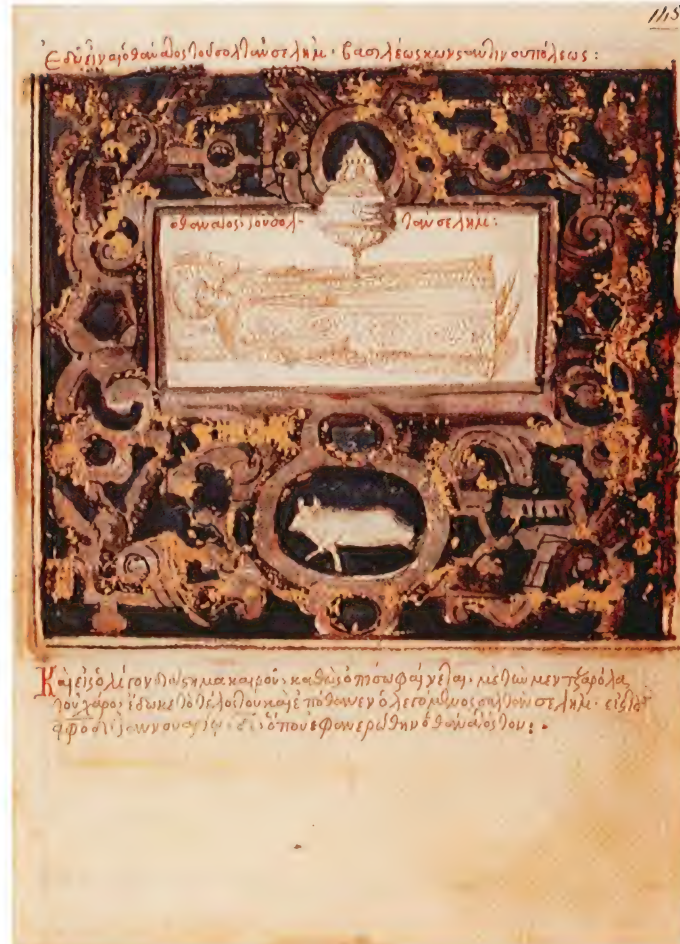 115
Ἐδῶ εἶναι ὁ θάνατος τοῦ σολτὰν σελήμ · βασιλέως κωνσταντινουπόλεως :
ὁ θάνατος τοῦ σολ-
τὰν σελήμ :
Καὶ εἰς ὀλίγον διάστημα καιροῦ, καθὼς ὀπίσω φαίνεται, μὲ τῶν
τοῦ χάρου ἔδωκε τὸ τέλος του καὶ ἐπόθανεν ὁ λεγόμενος σολτὰν σελήμ · εἰς
ὅπου ἐφανερώθην ὁ θάνατός του : ·